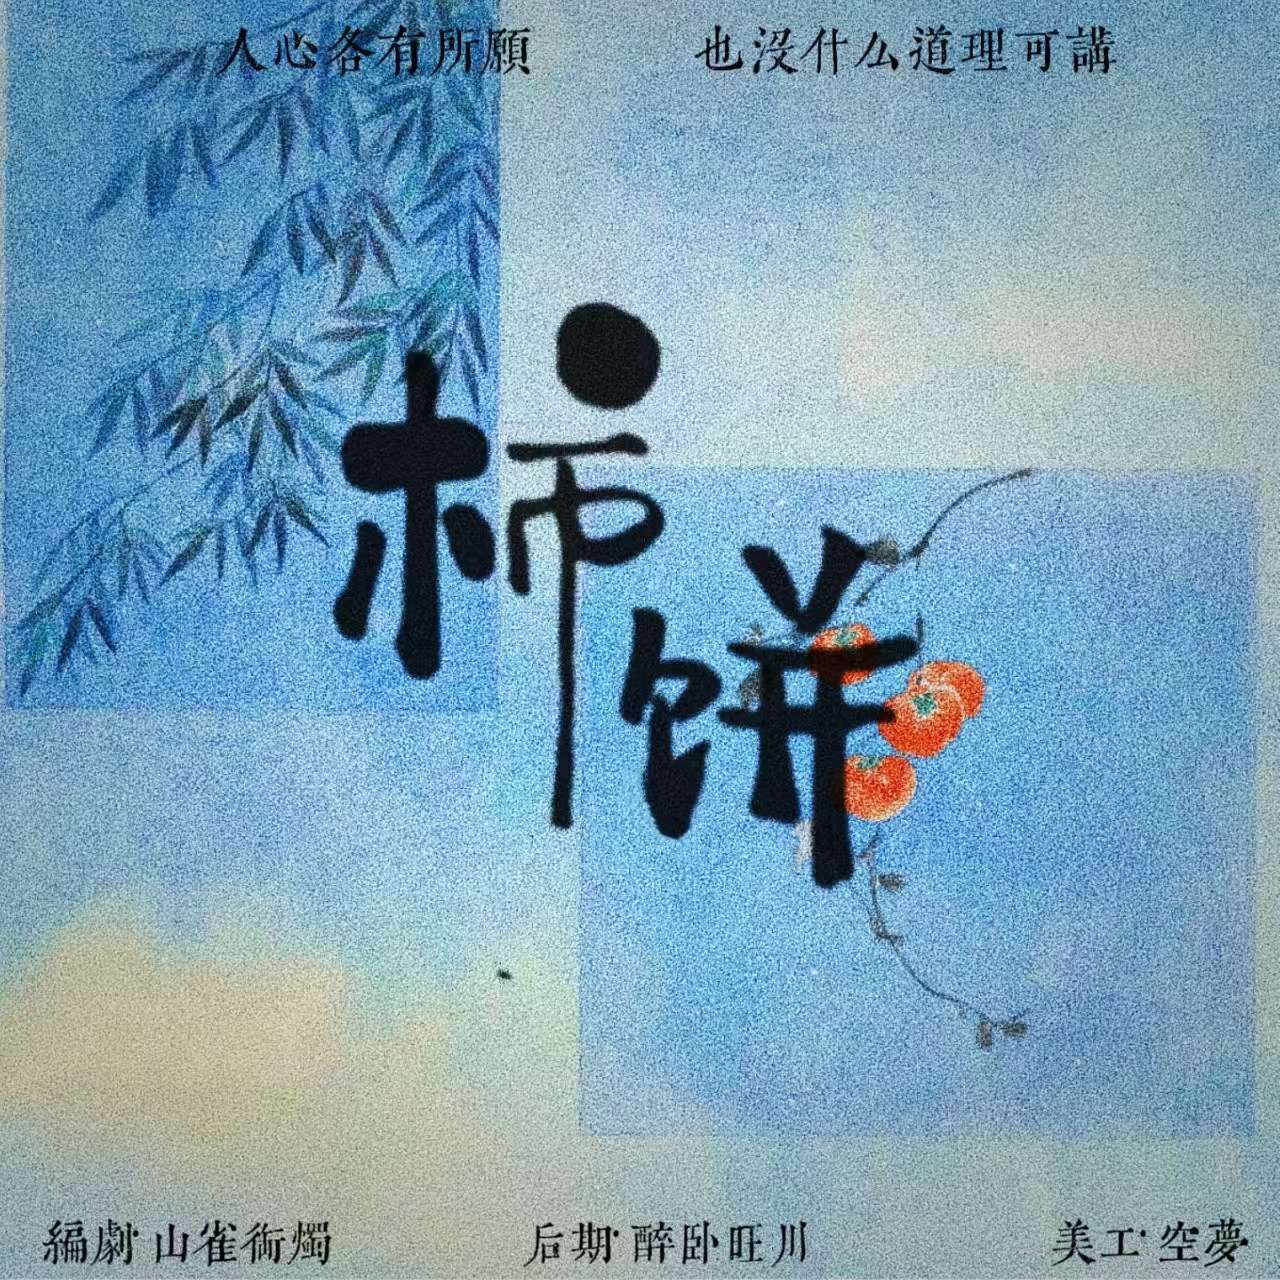 人心各有所願 也沒什么道理可講
柿餅
編劇·山雀銜燭 后期·醉卧旺川 美工·空夢